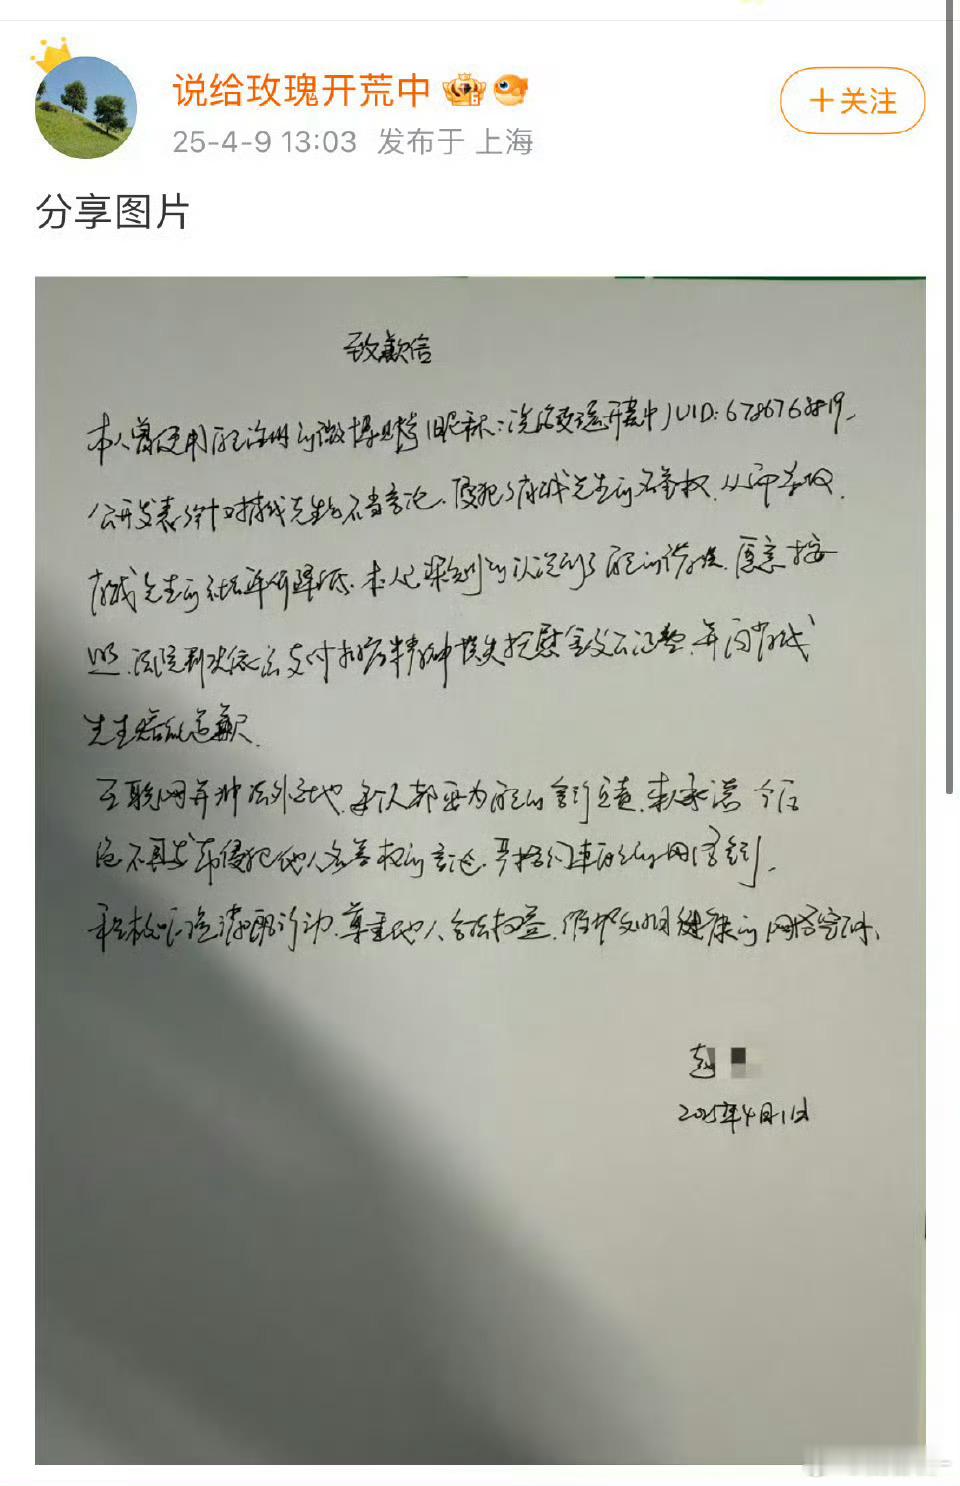 说给玫瑰开荒中
+关注
25-4-9 13:03 发布于 上海
分享图片
致歉信
本人曾使用自己注册的微博账号(昵称:说给玫瑰开荒中)UID:6786763819,
公开发表针对 先生的不当言论,侵犯了 先生的名誉权,从而导致
先生的社会评价降低。本人已深刻的认识到了自己的错误,愿意按
照法院判决依法支付 精神损失抚慰金及公证费,并向
先生赔礼道歉。
互联网并非法外之地,每个人都要为自己的言行负责,本人承诺今后
绝不再发布侵犯他人名誉权的言论,严格约束自己的网络言行。
积极 文明 尊重他人合法权益,维护文明健康的网络空间。
赵
2025年4月1日